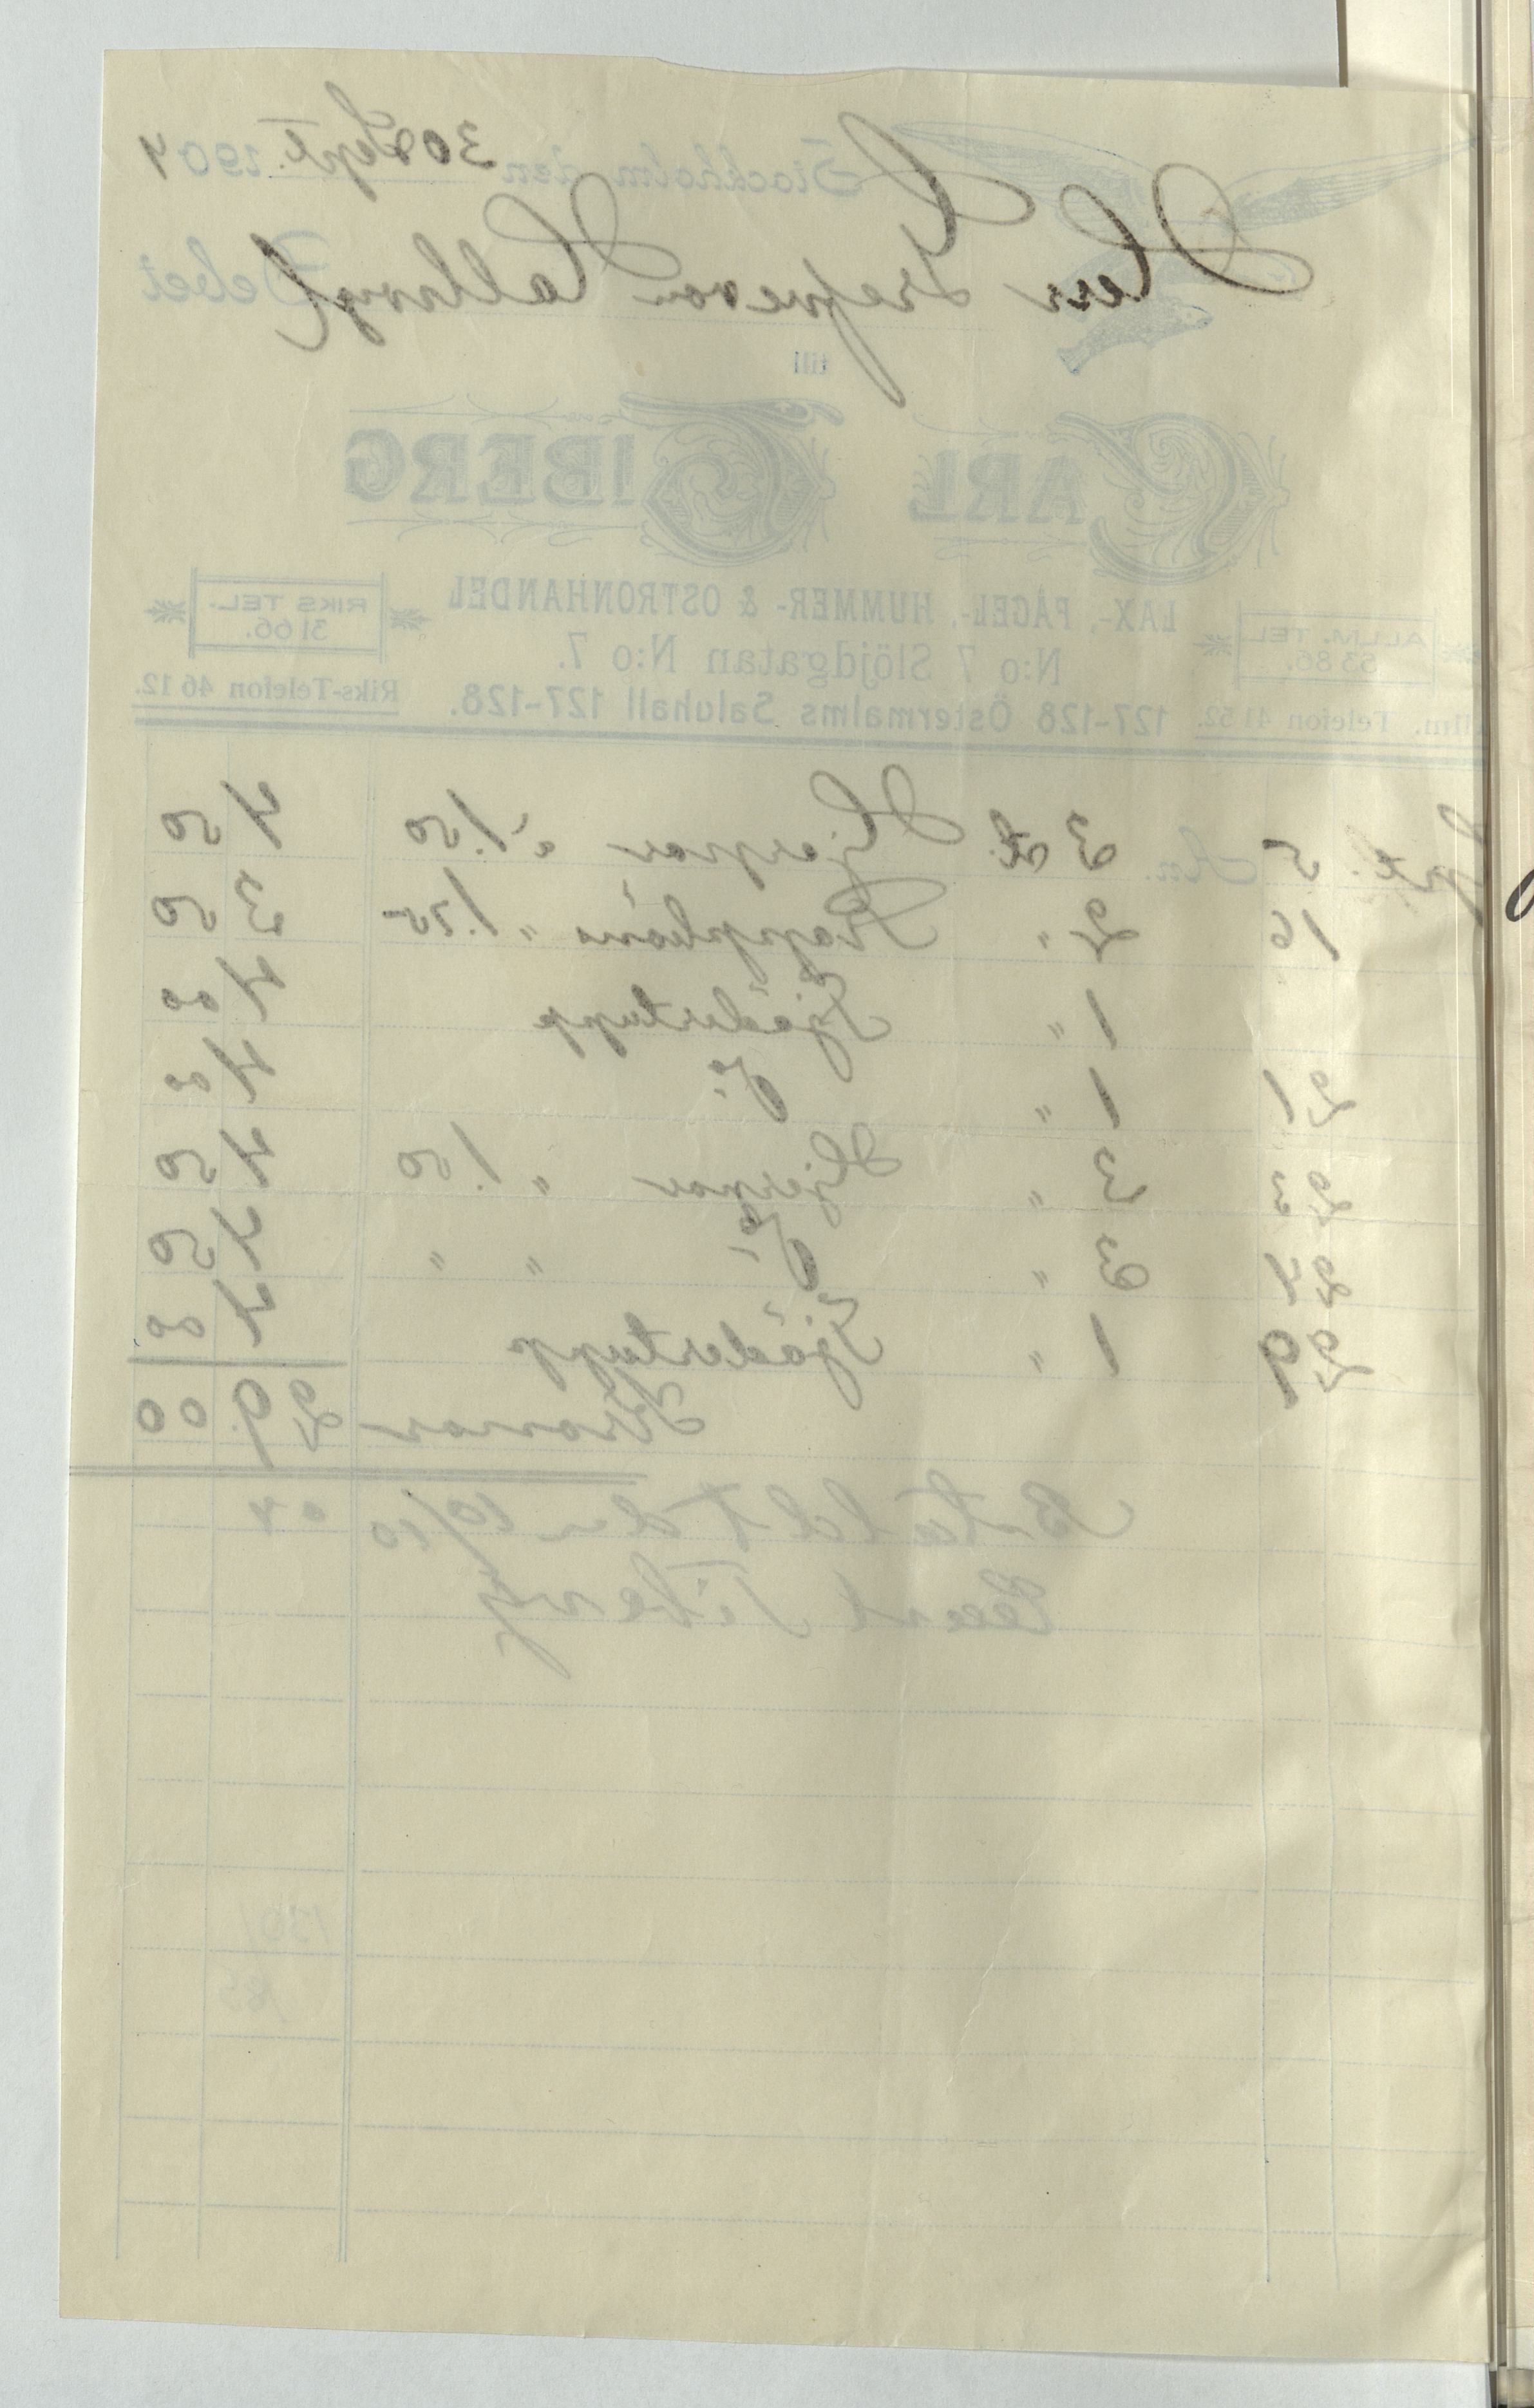 Stockholm den 30 Sept. 1904
Herr Grefve von Hallwyl Debet
till
CARL TIBERG
LAX-, FÅGEL-, HUMMER- & OSTRONHANDEL
ALLM. TEL. 53 86.
RIKS TEL. 31 66.
N:o 7 Slöjdgatan N:o 7.
Allm. Telefon 41 52. 127-128 Östermalms Saluhall 127-128. Riks-Telefon 46 12.
Sept. 5 3 st. Hjerpar à 1.50 4 50
16 2 " Rapphöns " 1.75 3 50
1 " Tjädertupp 4 00
21 1 " Do 4 00
22 3 " Hjerpar " 1.50 4 50
24 3 " Do " " 4 50
29 1 " Tjädertupp 4 00
Kronor 29.00
Betaldt den 10/10 04
Carl Tiberg